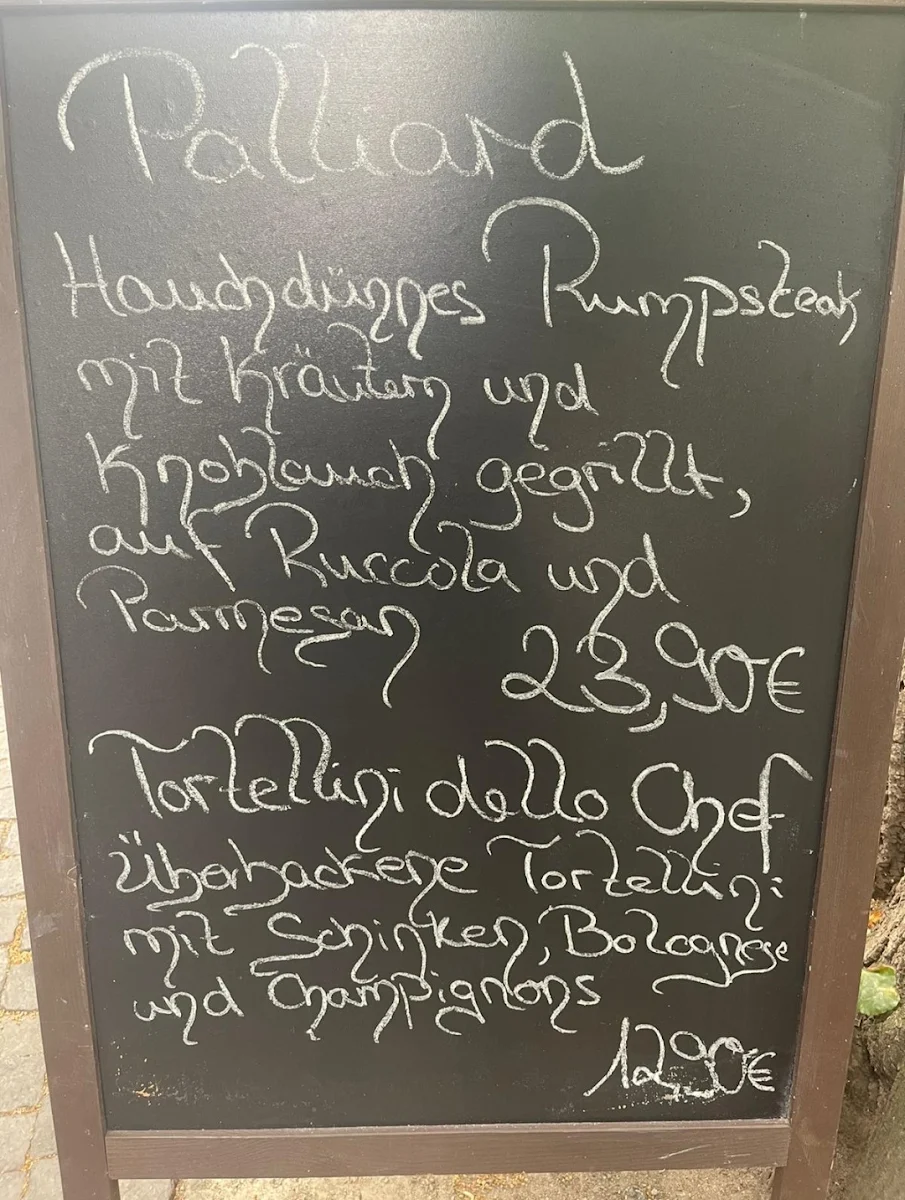 Palliard
Hauchdünnes Rumpsteak
mit Kräutern und
Knoblauch gegrillt,
auf Ruccola und
Parmesan
23,90€
Tortellini dello Chef
Überbackene Tortellini
mit Schinken, Bolognese
und Champignons
12,90€